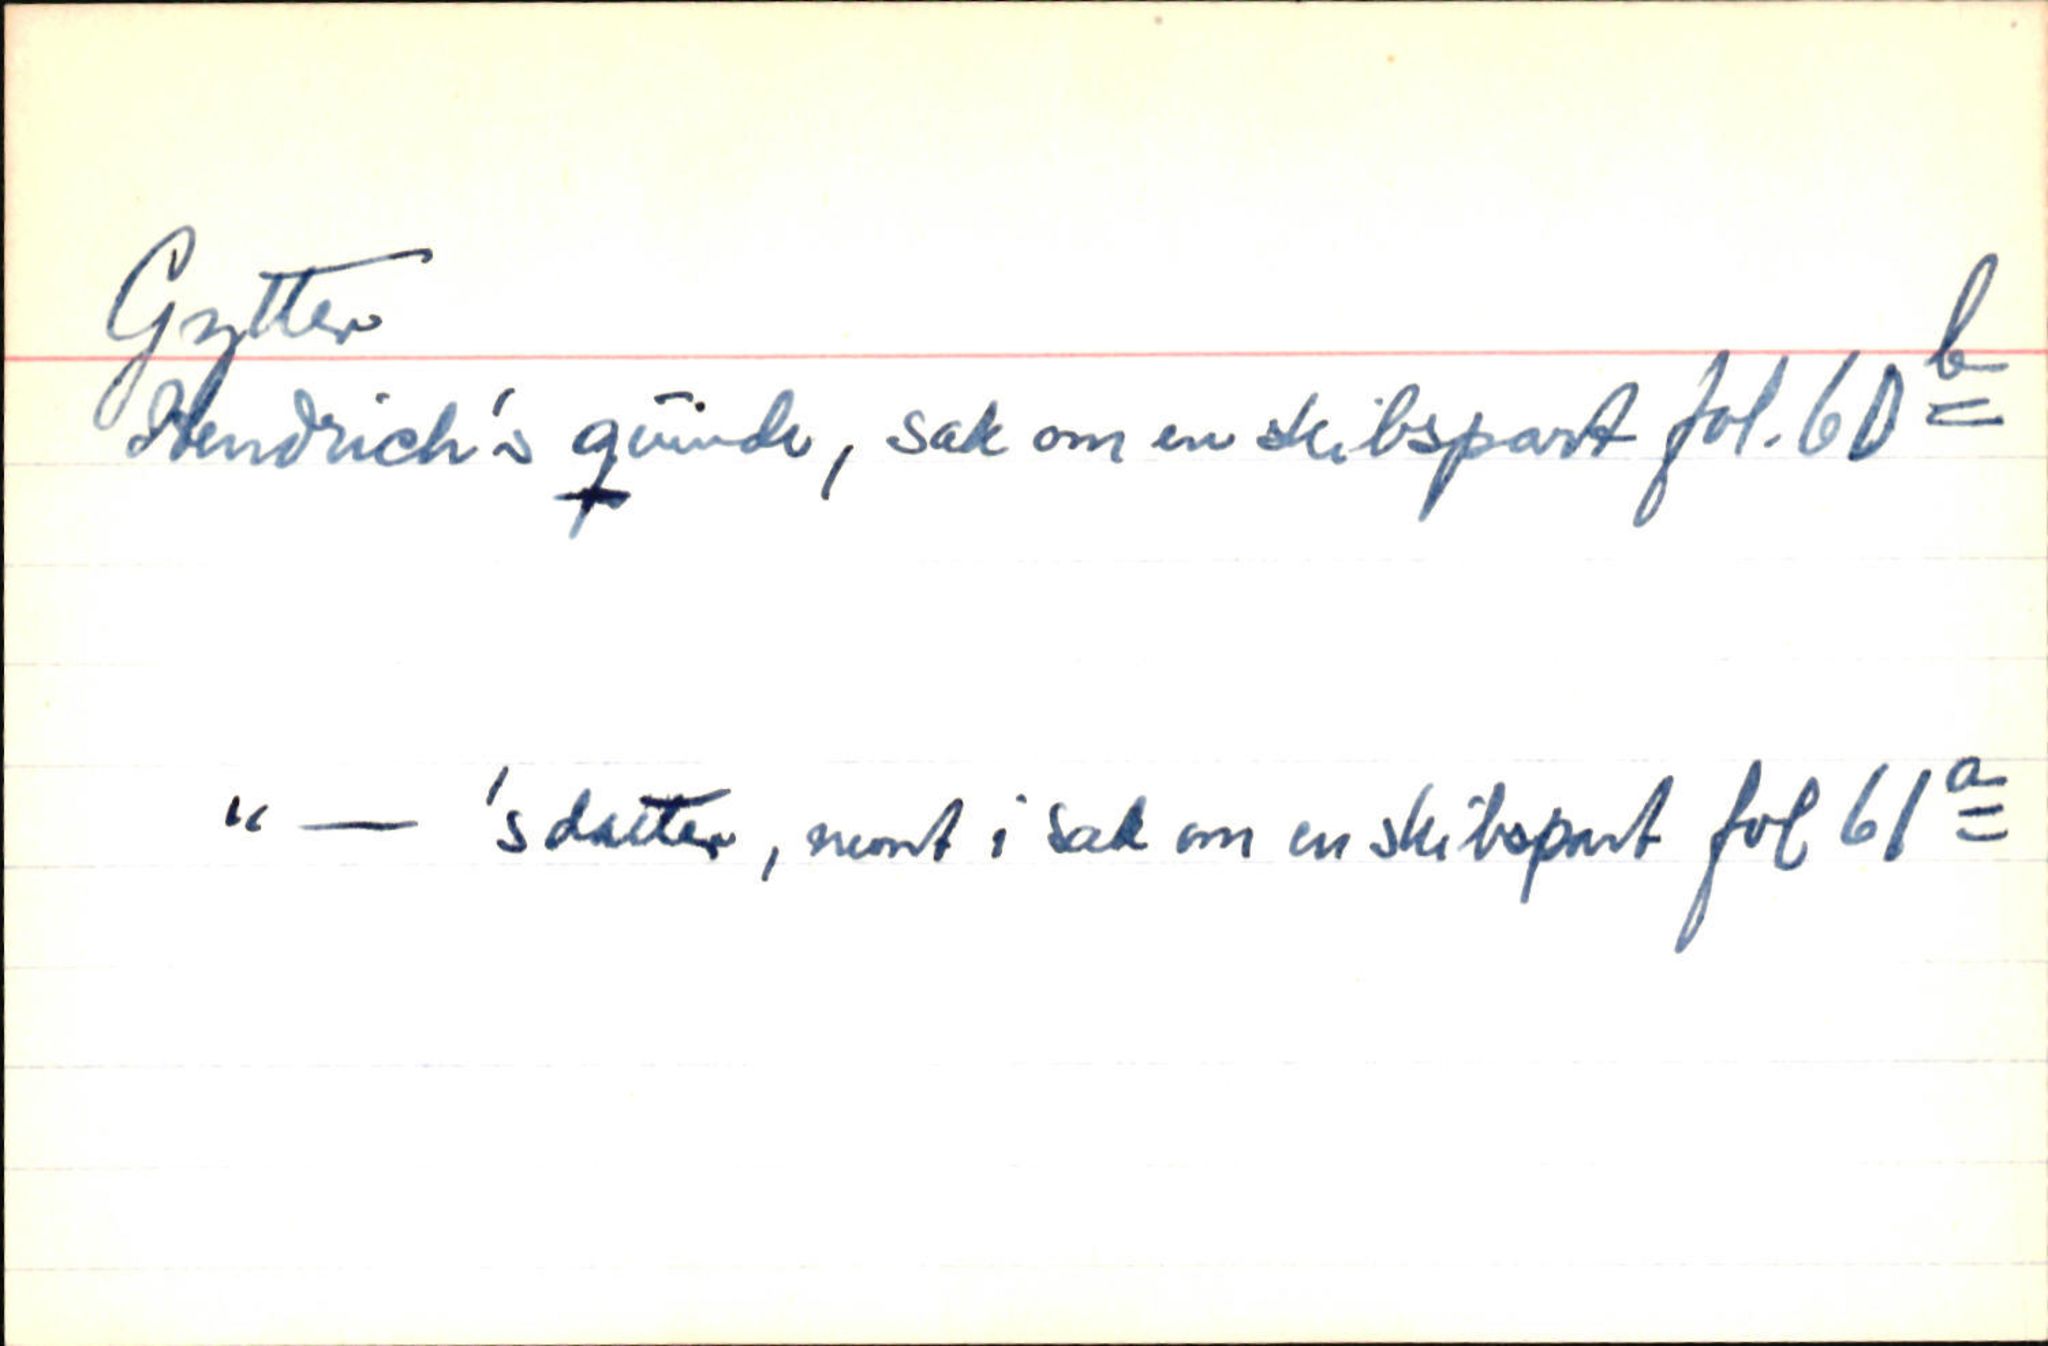 Gytter
Hendrich's qüinde, sak om en skibspart fol. 60 b
" — 's datter, nevnt i sak om en skibspart fol 61 a